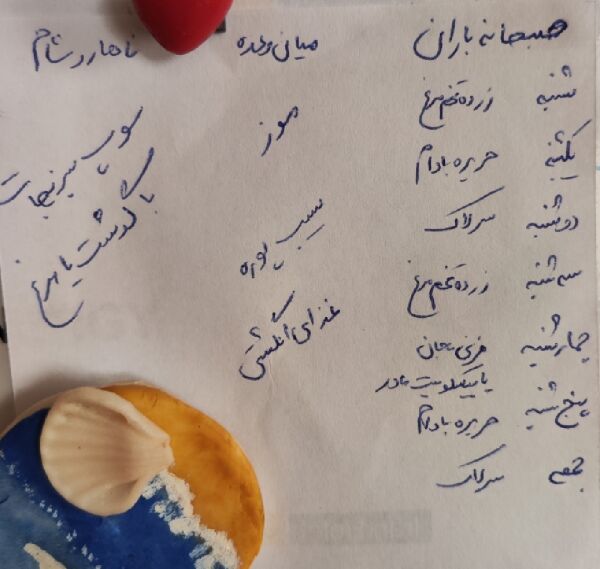 صبحانه باران
میان وعده
ناهار و شام
شنبه زرده تخم مرغ
یکشنبه حریره بادام
دوشنبه سرلاک
سه شنبه زرده تخم مرغ
چهارشنبه فرنی
یا بیسکوییت مادر
پنج شنبه حریره بادام
جمعه سرلاک
موز
سیب پوره
غذای انگشتی
سوپ سبزیجات
با گوشت یا مرغ